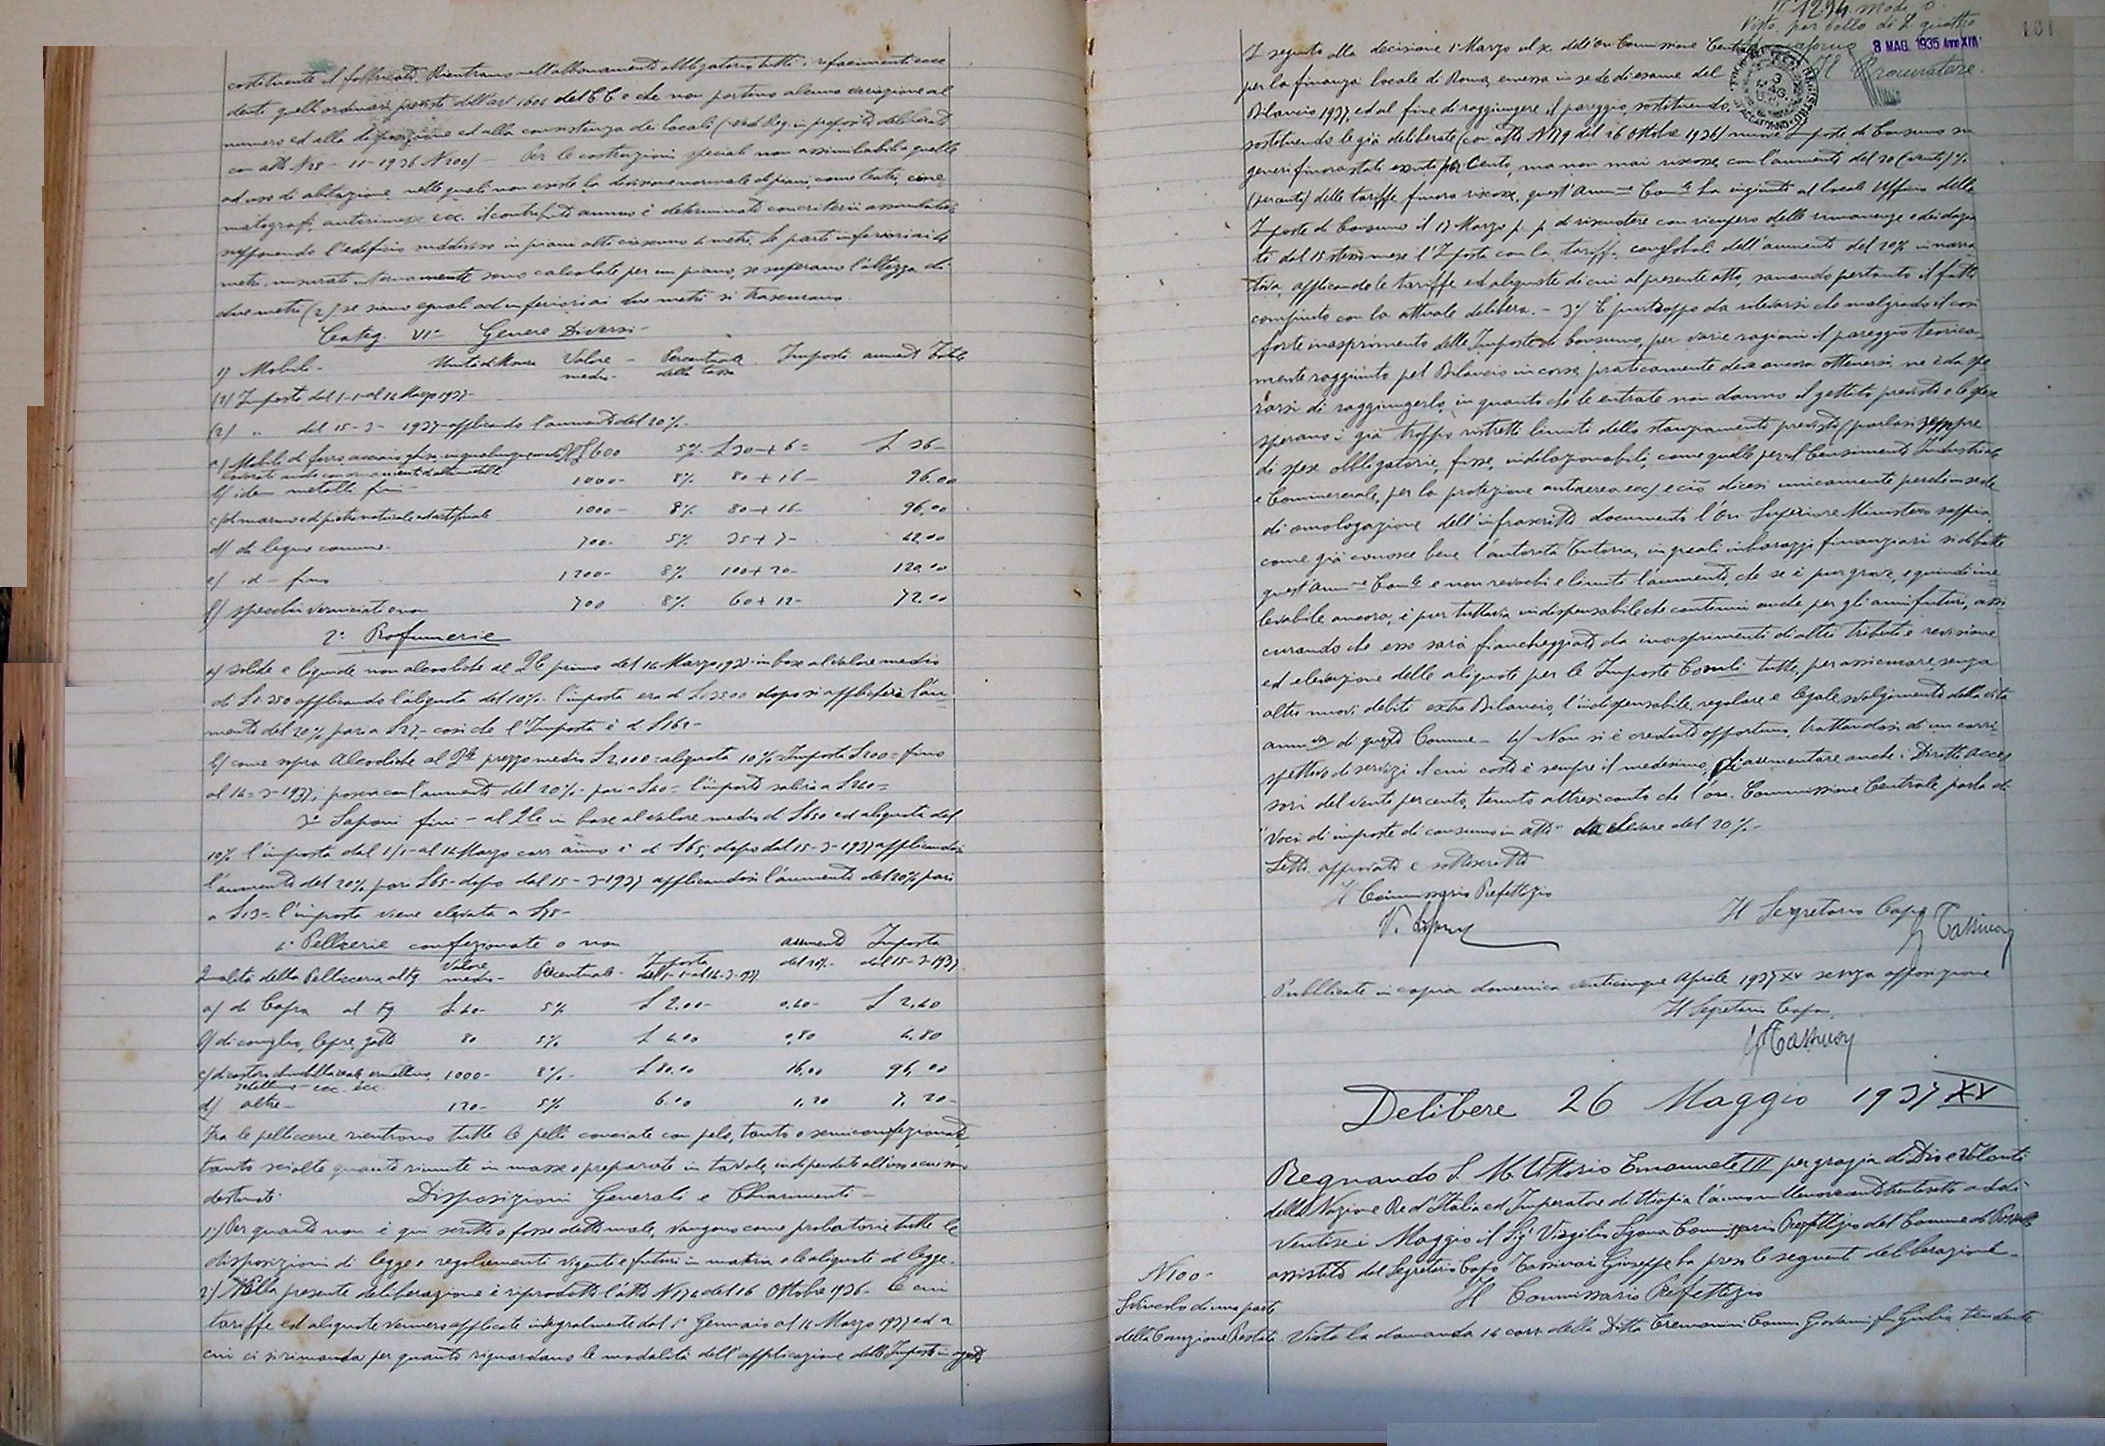 costituente il fabbricato. Rientrano nell'abbonamento obbligatorio tutti i rifacimenti ecce
denti quelli ordinari previsti dall'art 1604 del C C e che non portino alcuna variazione al
numero ed alla disposizione ed alla consistenza dei locali (vedi Reg. in proposito deliberato
con atto N 28 - 11 - 1936 N 200) - Per le costruzioni speciali non assimilabili a quelle
ad uso di abitazione, nelle quali non esiste la divisione normale di piani, come teatri, cine
matografi, autorimesse ecc. il contributo annuo è determinato con criterii assimilativi
supponendo l'edificio suddiviso in piani alti ciascuno 4 metri, le parti inferiori ai 4
metri, misurati internamente sono calcolate per un piano, se superano l'altezza di
due metri (2) se siano eguali od inferiori ai due metri si trascurano.
Categ. VIa Generi Diversi -
1) Mobili - Unità di Misura Valore medio - Percentuale della tassa Imposta aumento Totale
(1) Imposta dal 1-1- al 14 Marzo 1937 -
(2) " dal 15-3-1937 applicando l'aumento del 20%.
a) Mobili di ferro, acciaio, ghisa, in qualunque modo £ 600 5% £ 30 + 6 = £ 36 -
lavorati anche con ornamenti di altri metalli
b) idem metalli fini 1000 - 8% 80 + 16 - 96.00
c) di marmo e di pietre naturali ed artificiali 1000 - 8% 80 + 16 - 96,00
d) di legno comune - 700 - 5% 35 + 7 - 42.00
e) id - fino 1200 - 8% 100 + 20 - 120,00
f) specchi verniciati o non 700 8% 60 + 12 - 72.00
2° Profumerie
a) solide e liquide non alcooliche al Qle prima del 14 Marzo 1937 in base al valore medio
di £ 1350 applicando l'aliquota del 10% l'imposta era di £ 135.00 dopo si applicherà l'au
mento del 20% pari a £ 27 - così che l'Imposta è di £ 162 -
b) come sopra Alcooliche al Qle prezzo medio £ 2000 = aliquota 10% = Imposta £ 200 = fino
al 14 = 3 - 1937; poscia con l'aumento del 20% - pari a £ 40 = l'imposta salirà a £ 240 =
3° Saponi fini - al Qle in base al valore medio di £ 650 ed aliquota del
10% l'imposta dal 1/1 - al 14 Marzo corr anno è di £ 65; dopo dal 15-3-1937 applicandosi
l'aumento del 20% pari £ 65 - dopo dal 15 - 3 - 1937 applicandosi l'aumento del 20% pari
a £ 13 = l'imposta viene elevata a £ 78 -
4° Pelliccerie confezionate o non
Qualità della Pellicceria al Kg Valore medio - Percentuale - Imposta dal 1-1-al 14-3-937 aumento del 20% - Imposta dal 15-3-1937.
a) di Capra al Kg £ 40 - 5% £ 2.00 - 0,40 - £ 2,40
b) di coniglio, lepre, gatto 80 5% £ 4.00 0,80 4.80
c) di castoro, 1000 - 8% - £ 80.00 16,00 96,00
ecc. ecc.
d) altre - 120 - 5% 6.00 1,20 7,20 -
Fra le pelliccerie rientrano tutte le pelli conciate con pelo, tanto o semiconfezionate,
tanto sciolte quanto riunite in masse o preparate in tavole, indipendente all'uso a cui sono
destinate. Disposizioni Generali e Chiarimenti -
1°) Per quanto non è qui scritto o fosse detto male, vangono come probatorie tutte le
disposizioni di legge e regolamenti vigenti e futuri in materia e le aliquote di legge.
2°) Nella presente deliberazione è riprodotto l'atto N 174 del 16 Ottobre 1936 - le cui
tariffe ed aliquote vennero applicate integralmente dal 1° Gennaio al 14 Marzo 1937 ed a
cui ci si rimanda per quanto riguardano le modalità dell'applicazione delle Imposte in oggetto
N° 1294 Mod.
Visto per bollo di £ quattro
8 MAG. 1935 Anno XIII
Il Procuratore
101
I seguito alla decisione 1° Marzo u.s. dell'On Commissione Centrale
per la finanza locale di Roma, emessa in sede di esame del
Bilancio 1937, ed al fine di raggiungere il pareggio, sostituendo,
sostituendo le già deliberate (con atto N 179 del 26 Ottobre 1936) nuove Imposte di Consumo su
generi finora stati esenti, ma non mai riscosse, con l'aumento del 20 (venti) %
(percento) delle tariffe finora riscosse, quest'Amm.ne Com.le ha ingiunto al locale Ufficio delle
Imposte di Consumo il 17 Marzo p. p. di riscuotere con ricupero delle rimanenze e dei dazia
ti dal 15 stesso mese l'Imposta con la tariffa conglobata dell'aumento del 20% in narra
tiva, applicando le tariffe ed aliquote di cui al presente atto, sanando pertanto il fatto
compiuto con la attuale delibera. - 3°) È purtroppo da rilevarsi che malgrado il così
forte inasprimento delle Imposte di Consumo, per varie ragioni il pareggio teorica
mente raggiunto pel Bilancio in corso, praticamente deve ancora ottenersi, ne è da spe
rarsi di raggiungerlo, in quanto che le entrate non danno il gettito previsto e le spese
superano i già troppo ristretti limiti dello stanziamento previsto (parlasi sempre
di spese obbligatorie, fisse, indilazionabili, come quelle per il Censimento Industriale
e Commerciale, per la protezione antiaerea ecc) e ciò dicesi unicamente perchè in sede
di omologazione dell'infrascritto documento l'On Superiore Ministero sappia,
come già conosce bene l'autorità Tutoria, in quali imbarazzi finanziari si dibatte
quest'Amm.ne Com.le e non revochi e limiti l'aumento, che se è pur grave, e quindi ine
levabile ancora, è pur tuttavia indispensabile che continui anche per gli anni futuri, assi
curando che esso sarà fiancheggiato da inasprimenti di altri tributi e revisione
ed elevazione delle aliquote per le Imposte Com.li tutte, per assicurare, senza
altri nuovi debiti extra Bilancio, l'indispensabile, regolare e legale svolgimento della vita
amm.va di questo Comune - 4°) Non si è creduto opportuno, trattandosi di un corri
spettivo di servizi il cui costo è sempre il medesimo, di aumentare anche i Diritti acces
sori del venti per cento, tenuto altresì conto che l'On. Commissione Centrale parla di
"Voci di imposte di consumo in atto" da elevare del 20% -
Letto approvato e sottoscritto
Il Commissario Prefettizio
Il Segretario Capo
G Tassinari
Pubblicato in copia domenica venticinque Aprile 1937 XV senza opposizione
Il Segretario Capo
G Tassinari
Delibere 26 Maggio 1937 XV
Regnando S. M. Vittorio Emanuele III per grazia di Dio e Volontà
della Nazione Re d'Italia ed Imperatore di Etiopia l'anno millenovecentotrentasette addì
Ventisei Maggio il Sig Virgilio Commissario Prefettizio del Comune di
assistito dal Segretario Capo Tassinari Giuseppe ha preso le seguenti deliberazioni -
Il Commissario Prefettizio
N 100 -
Svincolo di una parte
della Cauzione Prestata
Vista la domanda 14 corr. della Ditta Cremonini Comm Giovanni f Giulio tendente